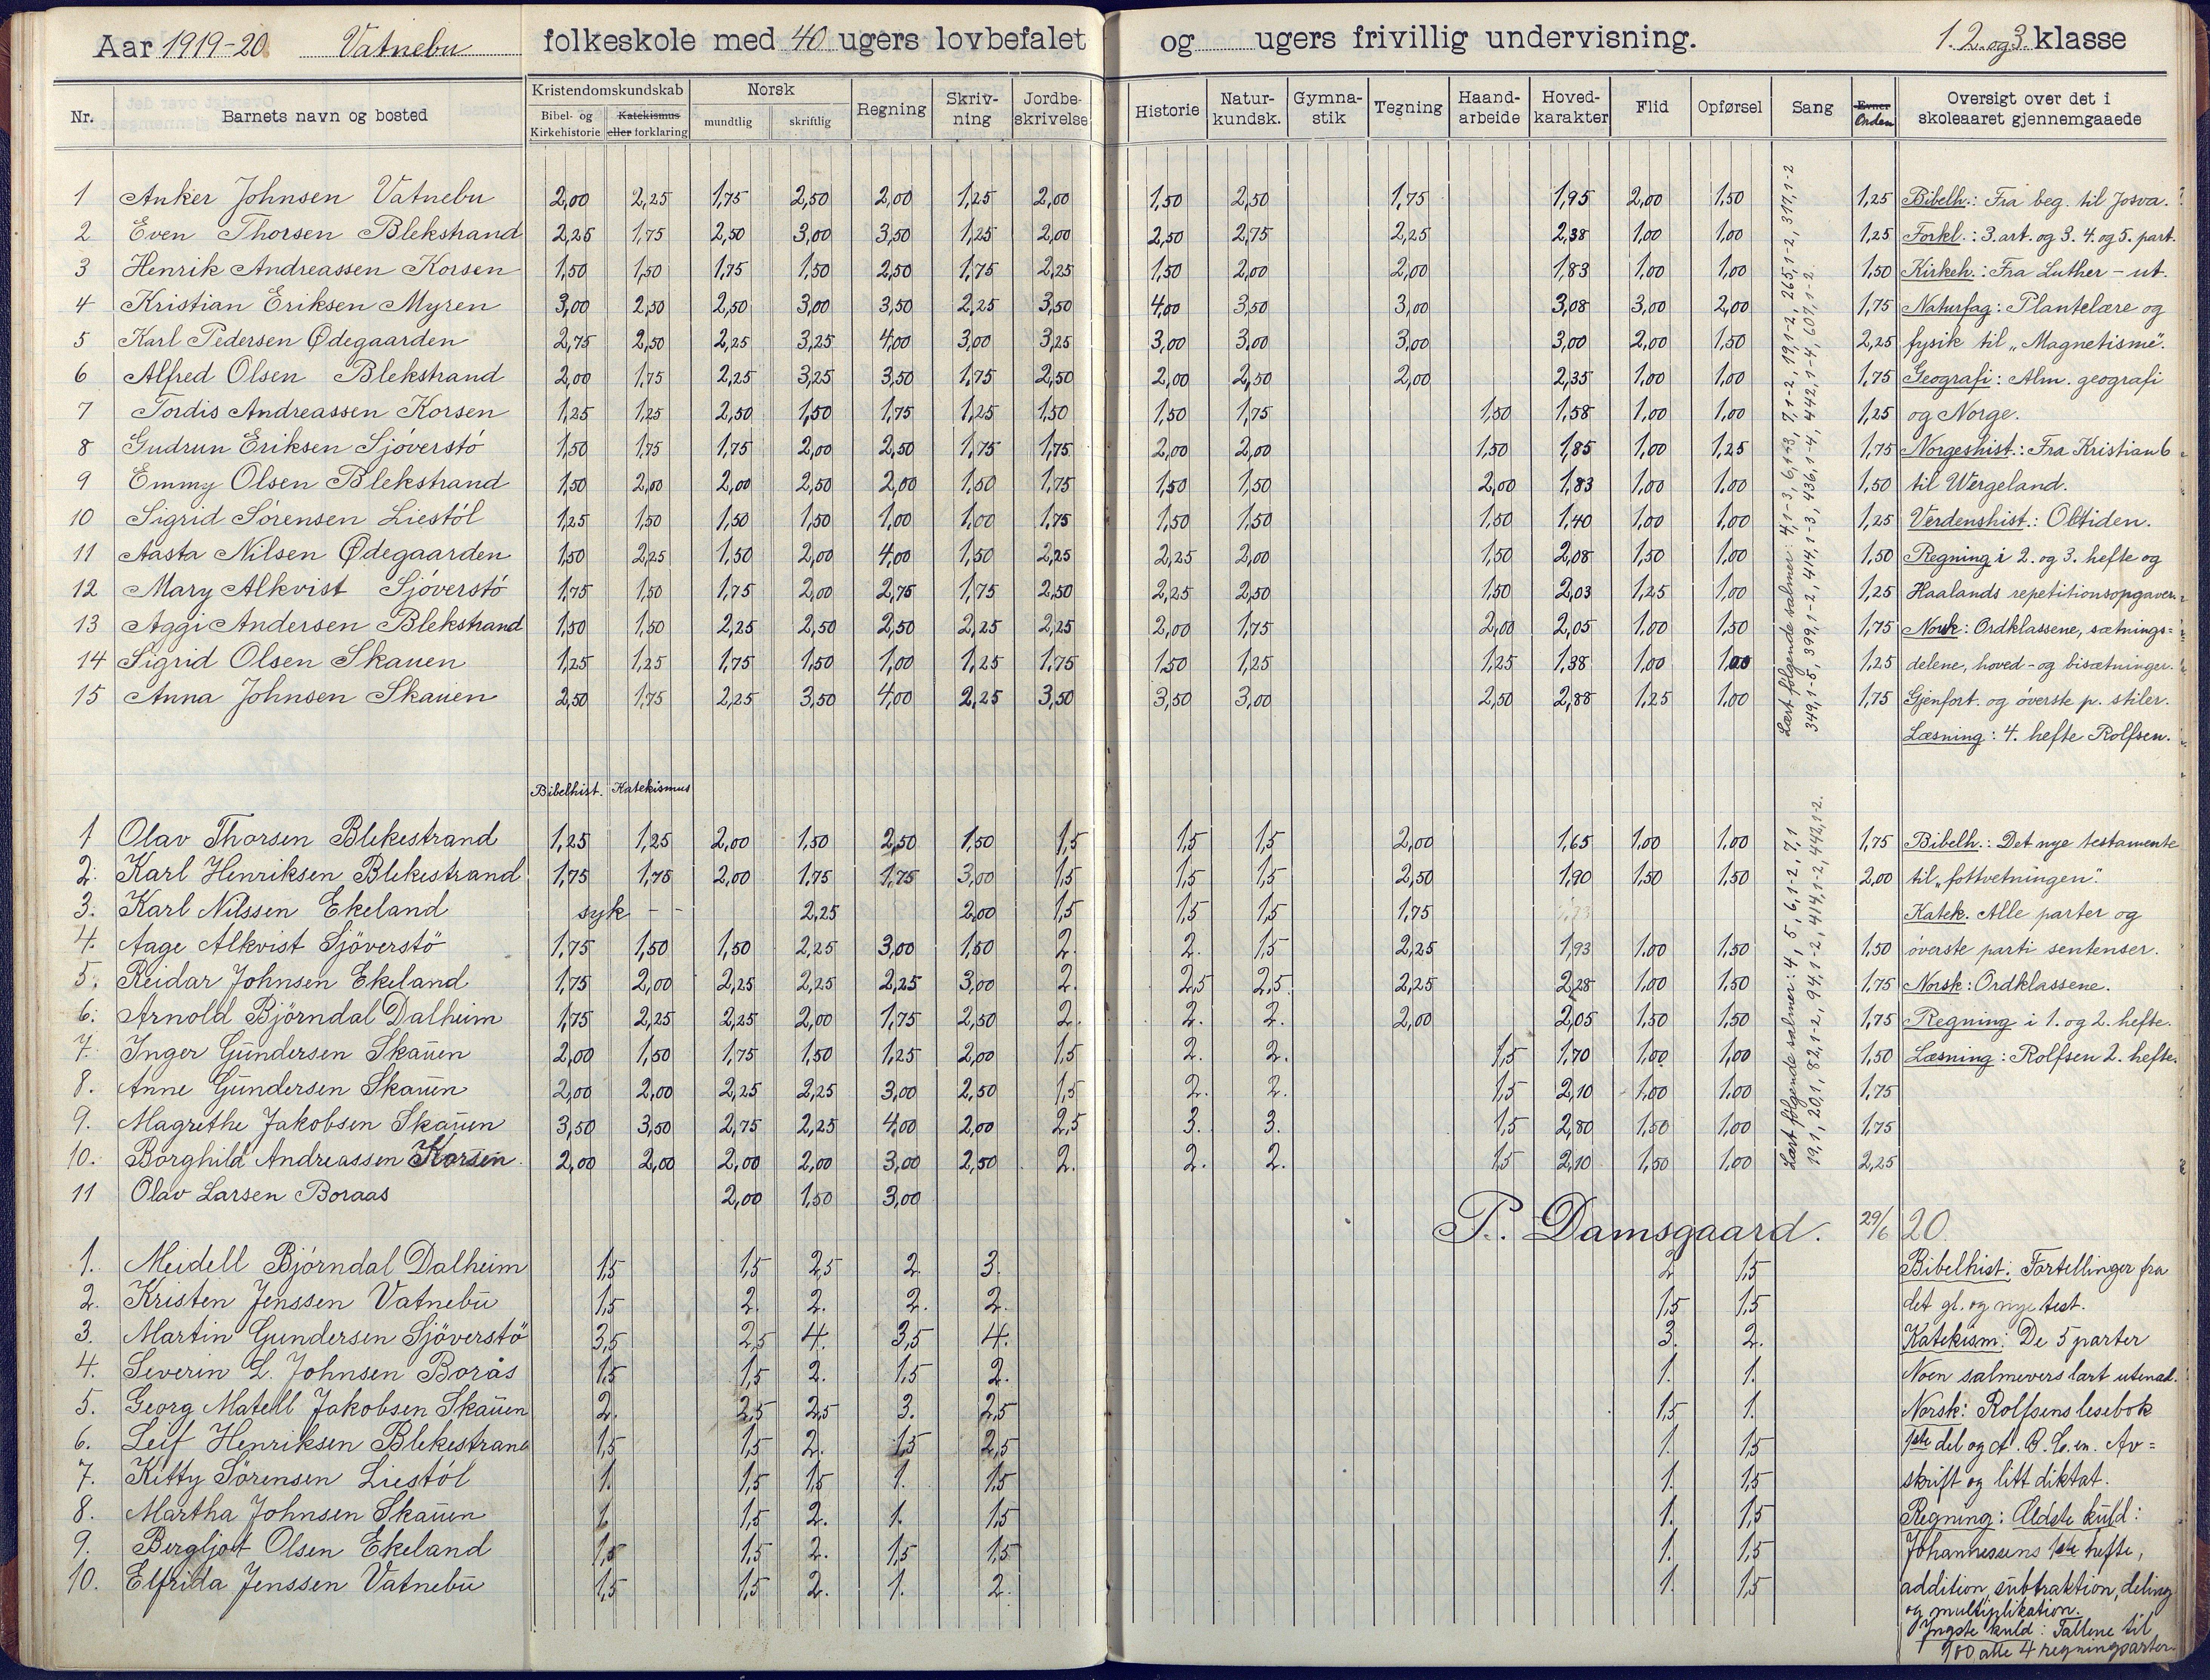 Aar 1919-20. Vatnebu folkeskole med 40 ugers lovbefalet og ugers frivillig undervisning. 1. 2. og 3. klasse
Nr. Barnets navn og bosted Kristendomskundskab Bibel- og Kirkehistorie Katekismus eller forklaring Norsk mundtlig skriftlig Regning Skriv-ning Jordbe-skrivelse Historie Natur-kundsk. Gymna-stik Tegning Haand-arbeide Hoved-karakter Flid Opførsel Sang Evner Orden Oversigt over det i skoleaaret gjennemgaaede
1 Anker Johnsen Vatnebu 2,00 2,25 1,75 2,50 2,00 1,25 2,00 1,50 2,50 1,75 1,95 2,00 1,50 1,25 Bibelh.: Fra beg. til Josva.
2 Even Thorsen Blekstrand 2,25 1,75 2,50 3,00 3,50 1,25 2,00 2,50 2,75 2,25 2,38 1,00 1,00 1,25 Forkl.: 3. art. og 3. 4. og 5. part.
3 Henrik Andreassen Korsen 1,50 1,50 1,75 1,50 2,50 1,75 2,25 1,50 2,00 2,00 1,83 1,00 1,00 1,50 Kirkeh.: Fra Luther - ut.
4 Kristian Eriksen Myren 3,00 2,50 2,50 3,00 3,50 2,25 3,50 4,00 3,50 3,00 3,08 3,00 2,00 1,75 Naturfag: Plantelære og
5 Karl Pedersen Ødegaarden 2,75 2,50 2,25 3,25 4,00 3,00 3,25 3,00 3,00 3,00 3,00 2,00 1,50 2,25 fysik til „Magnetisme".
6 Alfred Olsen Blekstrand 2,00 1,75 2,25 3,25 3,50 1,75 2,50 2,00 2,50 2,00 2,35 1,00 1,00 1,75 Geografi: Alm. geografi
7 Tordis Andreassen Korsen 1,25 1,25 2,50 1,50 1,75 1,25 1,50 1,50 1,75 1,50 1,58 1,00 1,00 1,25 og Norge.
8 Gudrun Eriksen Sjöverstö 1,50 1,75 1,75 2,00 2,50 1,75 1,75 2,00 2,00 1,50 1,85 1,00 1,25 1,75 Norgeshist.: Fra Kristian 6
9 Emmy Olsen Blekstrand 1,50 2,00 2,00 2,50 2,00 1,50 1,75 1,50 1,50 2,00 1,83 1,00 1,00 1,50 til Wergeland.
10 Sigrid Sörensen Liestöl 1,25 1,50 1,50 1,50 1,00 1,00 1,75 1,50 1,50 1,50 1,40 1,00 1,00 1,25 Verdenshist.: Oltiden.
11 Aasta Nilsen Ødegaarden 1,50 2,25 1,50 2,00 4,00 1,50 2,25 2,25 2,00 1,50 2,08 1,50 1,00 1,50 Regning i 2. og 3. hefte og
12 Mary Alkvist Sjöverstö 1,75 1,50 1,75 2,00 2,75 1,75 2,50 2,25 2,50 1,50 2,03 1,25 1,00 1,25 Haalands repetitionsopgaver.
13 Aggi Andersen Blekstrand 1,50 1,50 2,25 2,50 2,50 2,25 2,25 2,00 1,75 2,00 2,05 1,00 1,50 1,75 Norsk: Ordklassene, sætnings=
14 Sigrid Olsen Skauen 1,25 1,25 1,75 1,50 1,00 1,25 1,75 1,50 1,25 1,25 1,38 1,00 1,00 1,25 delene, hoved- og bisætninger.
15 Anna Johnsen Skauen 2,50 1,75 2,25 3,50 4,00 2,25 3,50 3,50 3,00 2,50 2,88 1,25 1,00 1,75 Gjenfort. og överste p. stiler.
Læsning: 4. hefte Rolfsen.
Læst følgende salmer: 4,1-3, 6,1+3, 7,1-2, 19,1-2, 265,1-2, 317,1-2
349,1-5, 399,1-2, 414,1-3, 436,1-4, 442,1-4, 607,1-2.
Bibelhist. Katekismus
1 Olav Thorsen Blekestrand 1,25 1,25 2,00 1,50 2,50 1,50 1,5 1,5 1,5 2,00 1,65 1,00 1,00 1,75 Bibelh.: Det nye testamente
2. Karl Henriksen Blekestrand 1,75 1,75 2,00 1,75 1,75 3,00 1,5 1,5 1,5 2,50 1,90 1,50 1,50 2,00 til „fottvetningen".
3. Karl Nilssen Ekeland syk - - 2,25 2,00 1,5 1,5 1,5 1,75 Katek. Alle parter og
4. Aage Alkvist Sjöverstö 1,75 1,50 1,50 2,25 3,00 1,50 2. 2. 1,5 2,25 1,93 1,00 1,50 1,50 överste parti sentenser.
5. Reidar Johnsen Ekeland 1,75 2,00 2,25 2,25 2,25 3,00 2. 2,5 2,5 2,25 2,28 1,00 1,50 1,75 Norsk: Ordklassene.
6. Arnold Björndal Dalheim 1,75 2,25 2,25 2,00 1,75 2,50 2. 2. 2. 2,00 2,05 1,50 1,50 1,75 Regning i 1. og 2. hefte.
7. Inger Gundersen Skauen 2,00 1,50 1,75 1,50 1,25 2,00 1,5 2. 2. 1,5 1,70 1,00 1,00 1,50 Læsning: Rolfsen 2. hefte.
8. Anne Gundersen Skauen 2,00 2,00 2,25 2,25 3,00 2,50 1,5 2. 2. 1,5 2,10 1,00 1,00 1,75
9. Magrethe Jakobsen Skauen 3,50 3,50 2,75 2,25 4,00 2,00 2,5 3. 3. 1,5 2,80 1,50 1,00 1,75
10. Borghild Andreassen Korsen. 2,00 2,00 2,00 2,00 3,00 2,50 2. 2. 2. 1,5 2,10 1,50 1,00 2,25
11 Olav Larsen Boraas 2,00 1,50 3,00
Læst følgende salmer: 4, 5, 6,1-2, 7,1
19,1, 20,1, 82,1-2, 94,1-2, 414,1-2, 442,1-2.
P. Damsgaard. 29/6 20.
1. Meidell Björndal Dalheim 1,5 1,5 2,5 2. 3. 2 1,5 Bibelhist: Fortellinger fra
2. Kristen Jenssen Vatnebu 1,5 2. 2. 2. 2. 1,5 1,5 det gl. og nye test.
3. Martin Gundersen Sjöverstö 3,5 2,5 4. 3,5 4. 3. 2. Katekism: De 5 parter
4. Severin L. Johnsen Borås 1,5 1,5 2. 1,5 2. 1. 1. Noen salmevers lært utenad.
5. Georg Matell Jakobsen Skauen 2. 2,5 2,5 3. 2,5 1,5 1. Norsk: Rolfsens lesebok
6. Leif Henriksen Blekestrand 1,5 1,5 2. 1,5 2,5 1. 1,5 1ste del og A.B.C.en. Av=
7. Kitty Sörensen Liestöl 1. 1,5 1,5 1. 1,5 1. 1,5 skrift og litt diktat.
8. Martha Johnsen Skauen 1 1,5 2. 1. 1,5 1. 1,5 Regning: Ældste kuld:
9. Bergljot Olsen Ekeland 1,5 1,5 2. 1,5 1,5 1. 1,5 Johannessens 1ste hefte,
10. Elfrida Jenssen Vatnebu 1,5 1,5 2. 1. 2. 1. 1,5 addition, subtraktion, deling
og multiplikation.
Yngste kuld: Tallene til
100 alle 4 regningsarter.